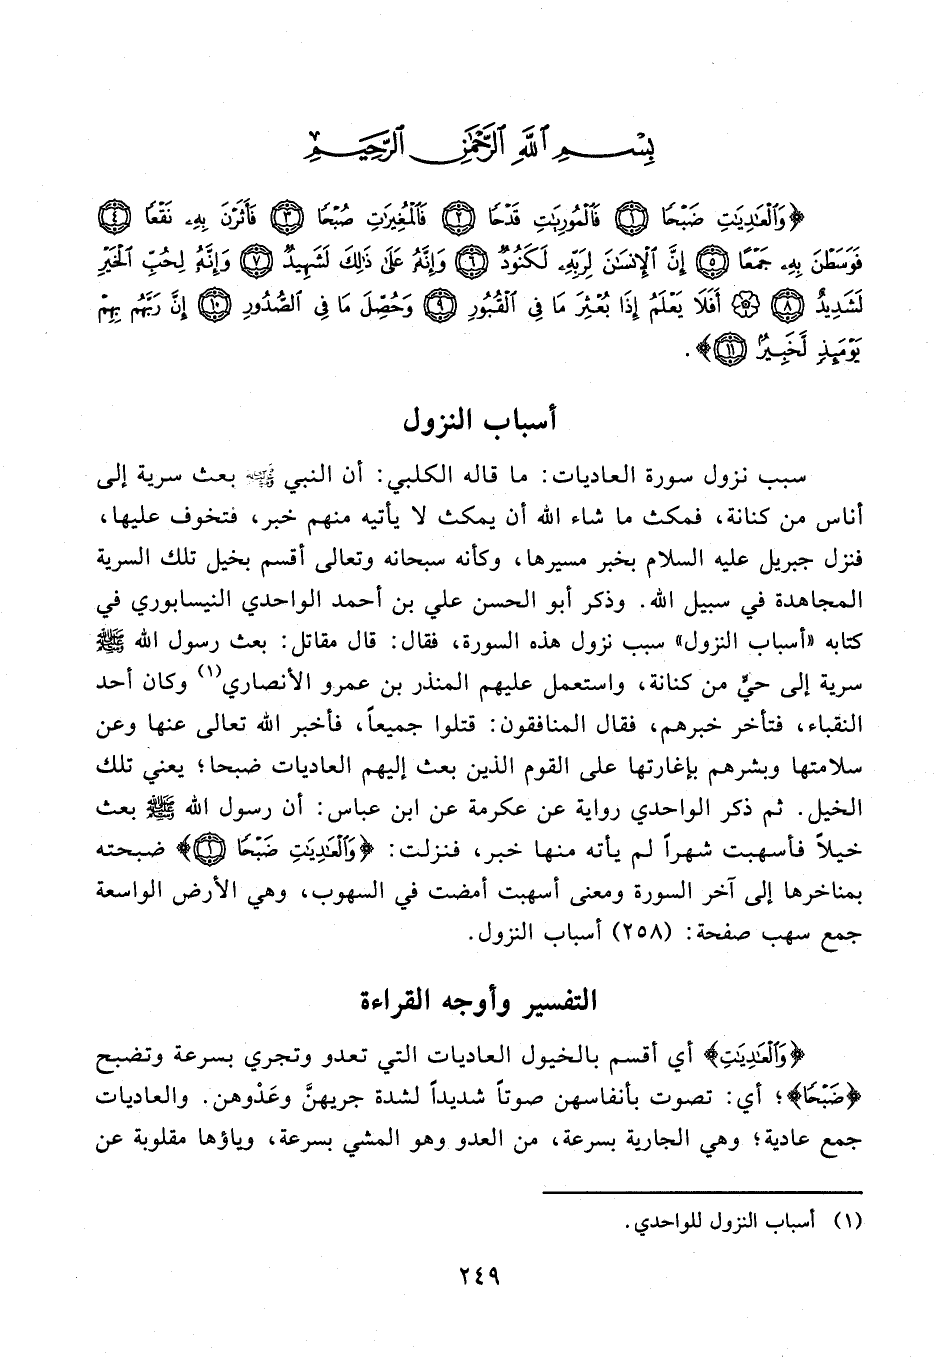 بِسْمِ ٱللَّهِ ٱلرَّحْمَٰنِ ٱلرَّحِيمِ
﴿وَٱلْعَٰدِيَٰتِ ضَبْحًا ١ فَٱلْمُورِيَٰتِ قَدْحًا ٢ فَٱلْمُغِيرَٰتِ صُبْحًا ٣ فَأَثَرْنَ بِهِۦ نَقْعًا ٤
فَوَسَطْنَ بِهِۦ جَمْعًا ٥ إِنَّ ٱلْإِنسَٰنَ لِرَبِّهِۦ لَكَنُودٌ ٦ وَإِنَّهُۥ عَلَىٰ ذَٰلِكَ لَشَهِيدٌ ٧ وَإِنَّهُۥ لِحُبِّ ٱلْخَيْرِ
لَشَدِيدٌ ٨ ۞ أَفَلَا يَعْلَمُ إِذَا بُعْثِرَ مَا فِي ٱلْقُبُورِ ٩ وَحُصِّلَ مَا فِي ٱلصُّدُورِ ١٠ إِنَّ رَبَّهُم بِهِمْ
يَوْمَئِذٍ لَّخَبِيرٌۢ ١١﴾.
أسباب النزول
سبب نزول سورة العاديات: ما قاله الكلبي: أن النبي ﷺ بعث سرية إلى
أناس من كنانة، فمكث ما شاء الله أن يمكث لا يأتيه منهم خبر، فتخوف عليها،
فنزل جبريل عليه السلام بخبر مسيرها، وكأنه سبحانه وتعالى أقسم بخيل تلك السرية
المجاهدة في سبيل الله. وذكر أبو الحسن علي بن أحمد الواحدي النيسابوري في
كتابه «أسباب النزول» سبب نزول هذه السورة، فقال: قال مقاتل: بعث رسول الله ﷺ
سرية إلى حيٍّ من كنانة، واستعمل عليهم المنذر بن عمرو الأنصاري(١) وكان أحد
النقباء، فتأخر خبرهم، فقال المنافقون: قتلوا جميعاً، فأخبر الله تعالى عنها وعن
سلامتها وبشرهم بإغارتها على القوم الذين بعث إليهم العاديات ضبحا؛ يعني تلك
الخيل. ثم ذكر الواحدي رواية عن عكرمة عن ابن عباس: أن رسول الله ﷺ بعث
خيلاً فأسهبت شهراً لم يأته منها خبر، فنزلت: ﴿وَٱلْعَٰدِيَٰتِ ضَبْحًا ١﴾ ضبحته
بمناخرها إلى آخر السورة ومعنى أسهبت أمضت في السهوب، وهي الأرض الواسعة
جمع سهب صفحة: (٢٥٨) أسباب النزول.
التفسير وأوجه القراءة
﴿وَٱلْعَٰدِيَٰتِ﴾ أي أقسم بالخيول العاديات التي تعدو وتجري بسرعة وتضبح
﴿ضَبْحًا﴾؛ أي: تصوت بأنفاسهن صوتاً شديداً لشدة جريهنَّ وعَدْوهن. والعاديات
جمع عادية؛ وهي الجارية بسرعة، من العدو وهو المشي بسرعة، وياؤها مقلوبة عن
(١) أسباب النزول للواحدي.
٢٤٩